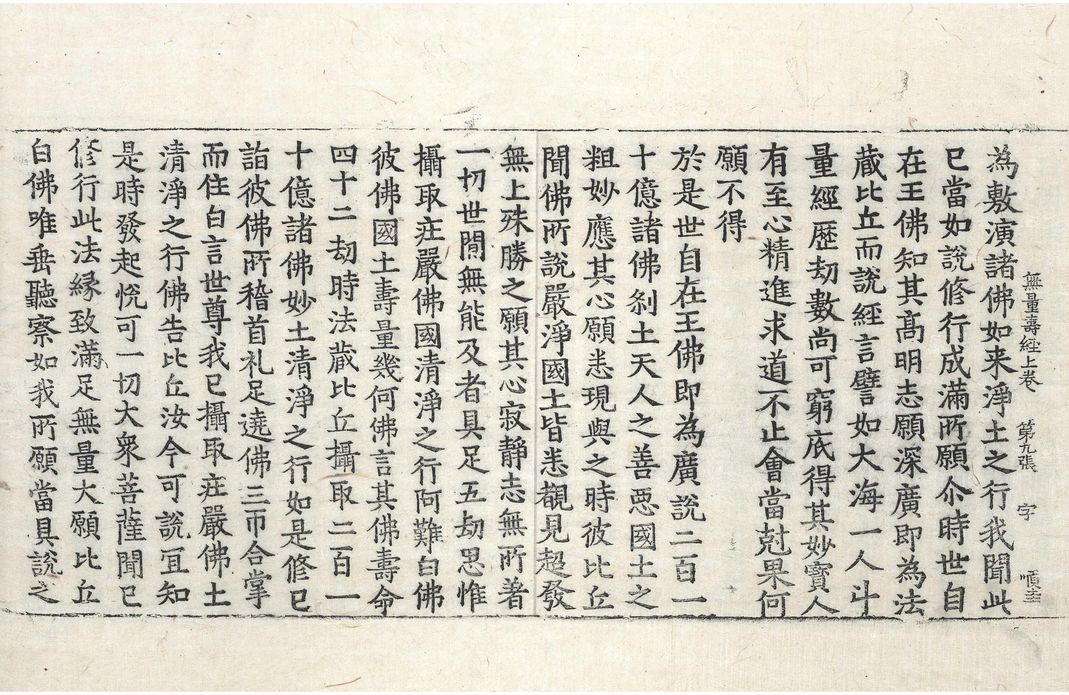 無量壽經上卷 第九張 字
為敷演諸佛如来淨土之行我聞此
已當如說修行成滿所願尒時世自
在王佛知其髙明志願深廣即為法
蔵比丘而說經言譬如大海一人斗
量經歷劫數尚可窮底得其妙寶人
有至心精進求道不止會當尅果何
願不得
於是世自在王佛即為廣說二百一
十億諸佛刹土天人之善惡國土之
粗妙應其心願悉現與之時彼比丘
聞佛所說嚴淨國土皆悉覩見超發
無上殊勝之願其心寂靜志無所著
一切世間無能及者具足五劫思惟
攝取莊嚴佛國清淨之行阿難白佛
彼佛國土壽量幾何佛言其佛壽命
四十二劫時法蔵比丘攝取二百一
十億諸佛妙土清淨之行如是修已
詣彼佛所稽首礼足遶佛三帀合掌
而住白言世尊我已攝取莊嚴佛土
清淨之行佛告比丘汝今可說宜知
是時發起悅可一切大衆菩薩聞已
修行此法緣致滿足無量大願比丘
白佛唯垂聽察如我所願當具說之